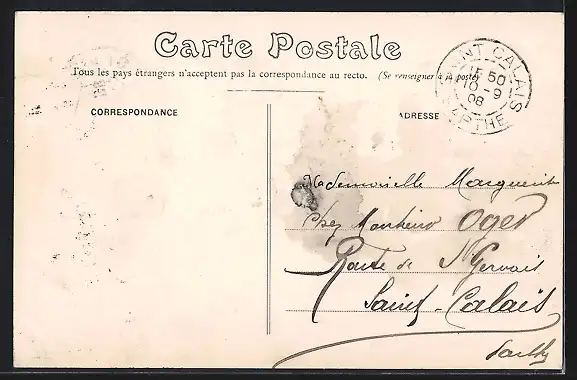 Carte Postale
Tous les pays étrangers n'acceptent pas la correspondance au recto. (Se renseigner à la poste)
CORRESPONDANCE
ADRESSE
SAINT CALAIS
15 50
10 - 9
08
SARTHE
Mademoiselle Marguerite
Chez Monsieur Oger
Route de St Gervais
Saint-Calais
Sarthe